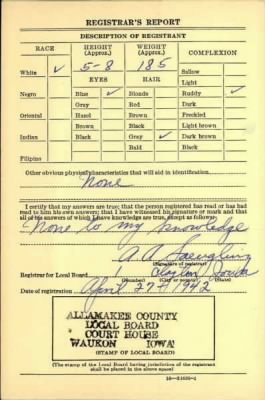 REGISTRAR'S REPORT
DESCRIPTION OF REGISTRANT
RACE
HEIGHT (Approx.)
WEIGHT (Approx.)
COMPLEXION
White ✓
5-8
185
Sallow
EYES
HAIR
Light
Negro
Blue ✓
Blonde
Ruddy ✓
Gray
Red
Dark
Oriental
Hazel
Brown
Freckled
Brown
Black
Light brown
Indian
Black
Gray ✓
Dark brown
Bald
Black
Filipino
Other obvious physical characteristics that will aid in identification
None
I certify that my answers are true; that the person registered has read or has had
read to him his own answers; that I have witnessed his signature or mark and that
all of his answers of which I have knowledge are true, except as follows:
None to my knowledge
A. A.
(Signature of registrar)
Registrar for Local Board 1 Clayton Iowa
(Number) (City or county) (State)
Date of registration April 27 1942
ALLAMAKEE COUNTY
LOCAL BOARD
COURT HOUSE
WAUKON IOWA
(STAMP OF LOCAL BOARD)
(The stamp of the Local Board having jurisdiction of the registrant
shall be placed in the above space)